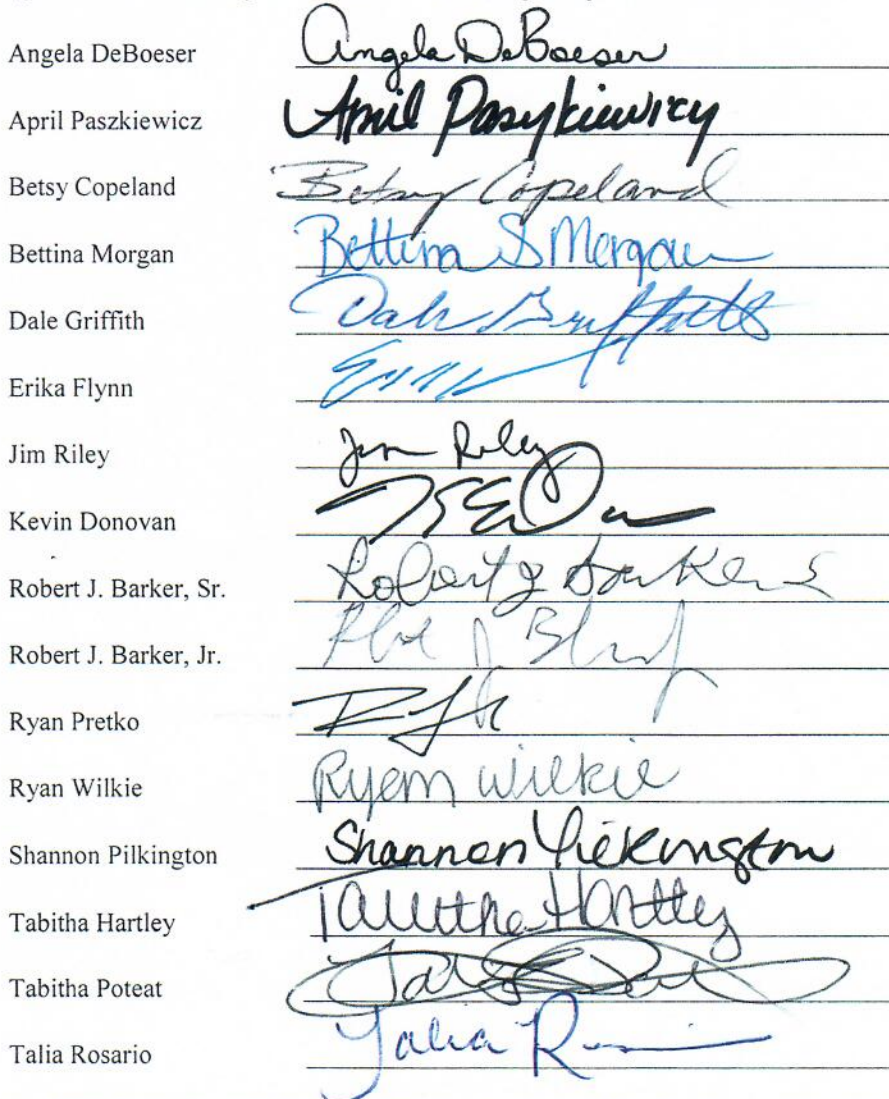 Angela DeBoeser Angela DeBoeser
April Paszkiewicz April Paszkiewicz
Betsy Copeland Betsy Copeland
Bettina Morgan Bettina S Morgan
Dale Griffith Dale
Erika Flynn
Jim Riley Jim Riley
Kevin Donovan
Robert J. Barker, Sr. Robert J Barker S
Robert J. Barker, Jr.
Ryan Pretko
Ryan Wilkie Ryan Wilkie
Shannon Pilkington Shannon Pilkington
Tabitha Hartley Tabitha Hartley
Tabitha Poteat
Talia Rosario Talia R